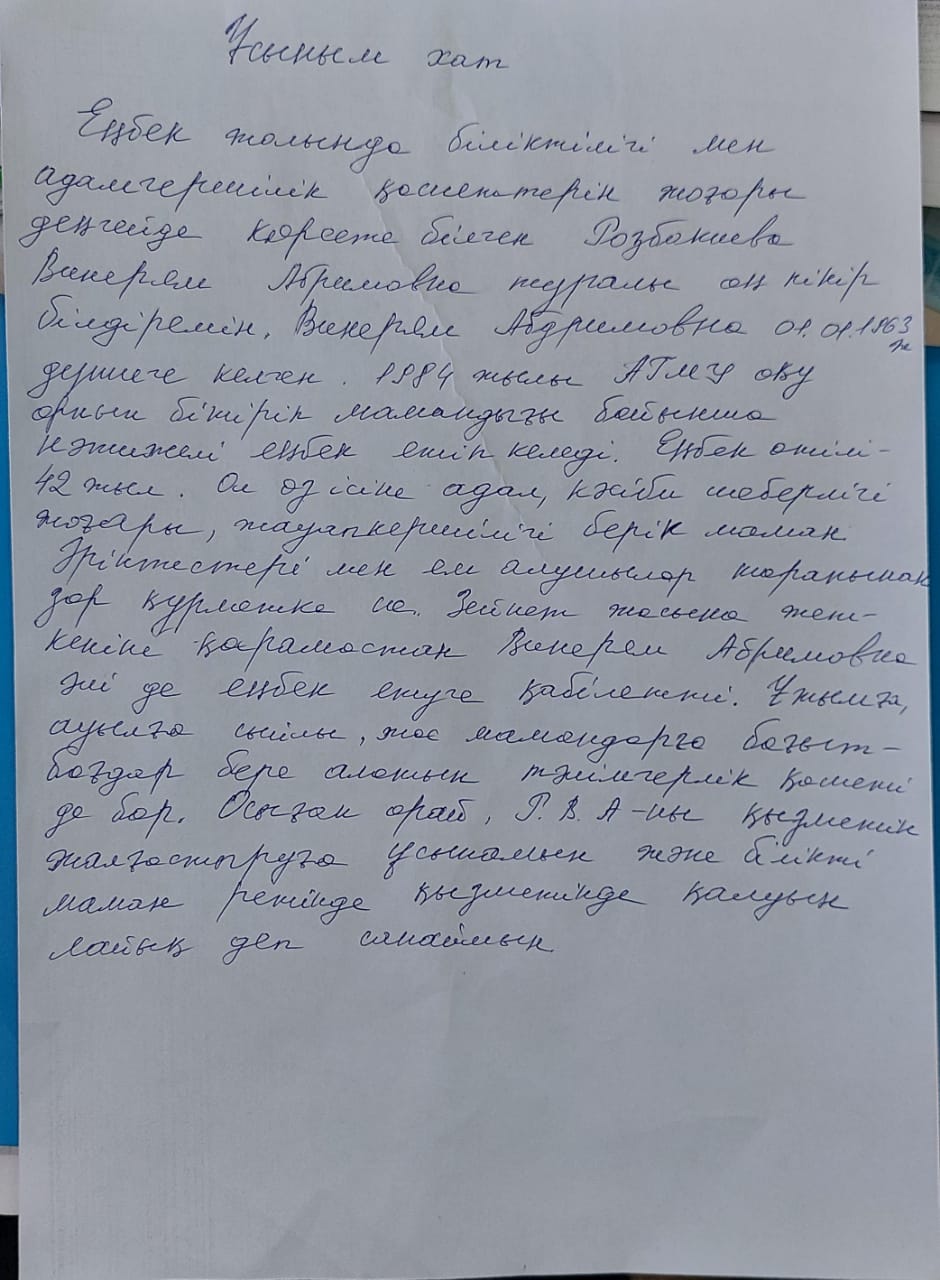 Ұсыным хат
Еңбек жолында біліктілігі мен
адамгершілік қасиеттерін жоғары
деңгейде көрсете білген Розбакиева
Винерям Абримовна туралы оң пікір
білдіремін. Винерям Абдримовна 01.01.1963
ж
дүниеге келген. 1984 жылы АГМУ оқу
орнын бітіріп мамандығы бойынша
нәтижелі еңбек етіп келеді. Еңбек өтілі-
42 жыл. Ол өз ісіне адал, кәсіби шеберлігі
жоғары, жауапкершілігі берік маман
Әріптестері мен ем алушылар тарапынан
зор құрметке ие. Зейнет жасына жет-
кеніне қарамастан Винерям Абримовна
әлі де еңбек етуге қабілетті. Ұжымға,
ауылға сыйлы, жас мамандарға бағыт-
бағдар бере алатын тәлімгерлік қасиеті
де бар. Осыған орай, Р. В. А-ны қызметін
жалғастыруға ұсынамын және білікті
маман ретінде қызметінде қалуын
лайық деп санаймын